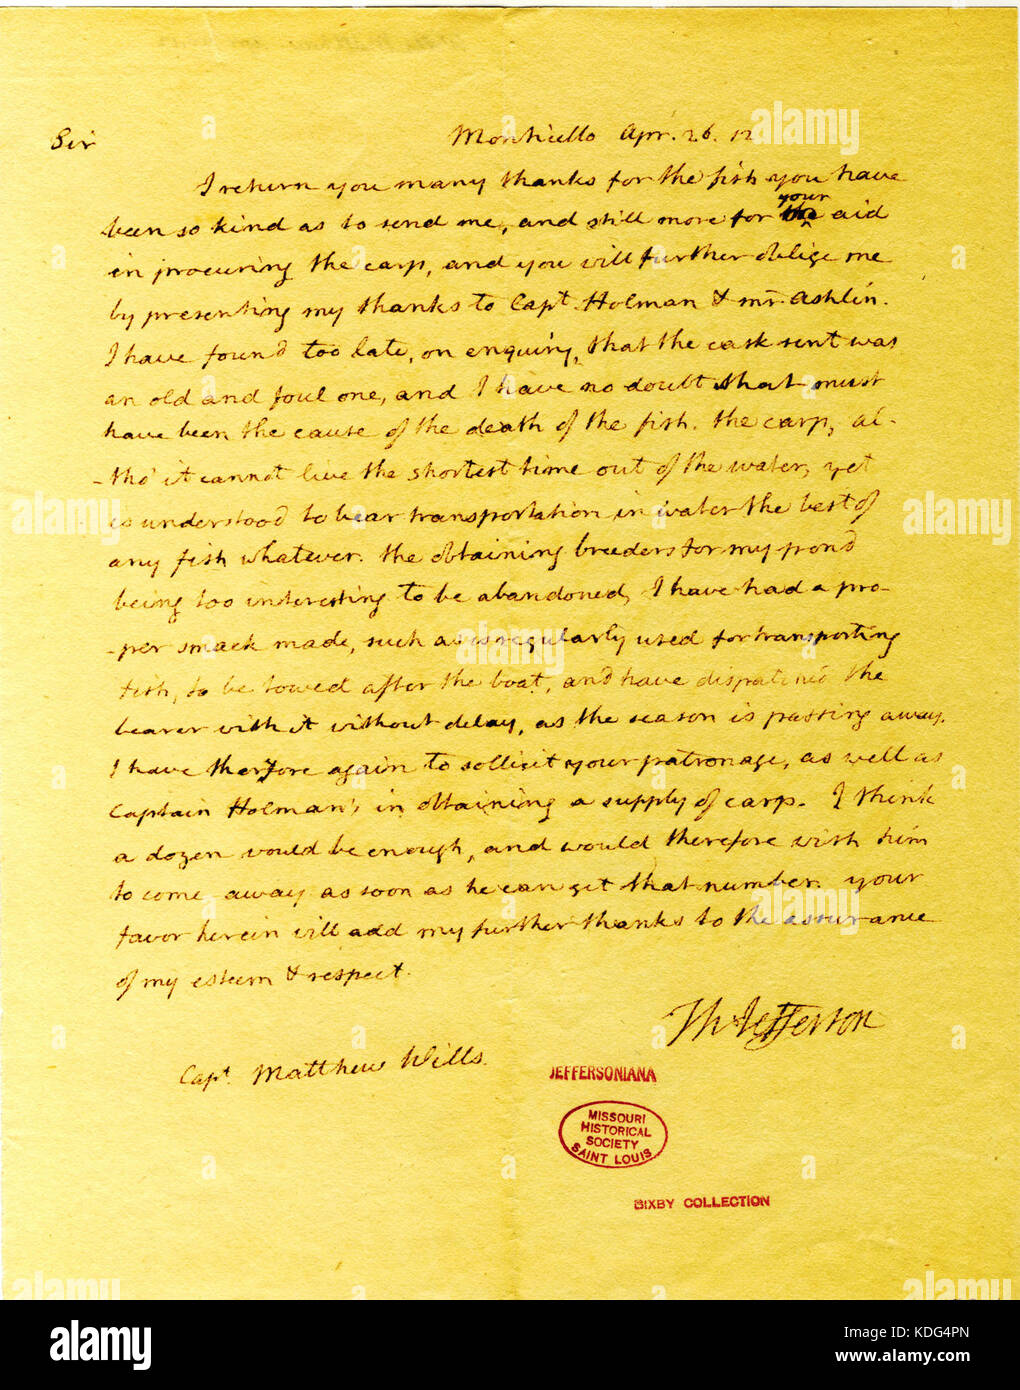 Monticello Apr. 26. 12
Sir
I return you many thanks for the fish you have
been so kind as to send me, and still more for your the aid
in procuring the carp, and you will further oblige me
by presenting my thanks to Capt. Holman & mr. Ashlin.
I have found too late, on enquiry, that the cask sent was
an old and foul one, and I have no doubt that must
have been the cause of the death of the fish. the carp, al-
-tho' it cannot live the shortest time out of the water, yet
is understood to bear transportation in water the best of
any fish whatever. the obtaining breeders for my pond
being too interesting to be abandoned, I have had a pro-
-per smack made, such as is regularly used for transporting
fish, to be towed after the boat, and have dispatched the
bearer with it without delay, as the season is passing away.
I have therefore again to sollicit your patronage, as well as
Captain Holman's in obtaining a supply of carp. I think
a dozen would be enough, and would therefore wish him
to come away as soon as he can get that number. your
favor herein will add my further thanks to the assurance
of my esteem & respect.
Th Jefferson
Capt. Matthew Wills.
JEFFERSONIANA
MISSOURI
HISTORICAL
SOCIETY
SAINT LOUIS
BIXBY COLLECTION
alamy
Image ID: KDG4PN
www.alamy.com